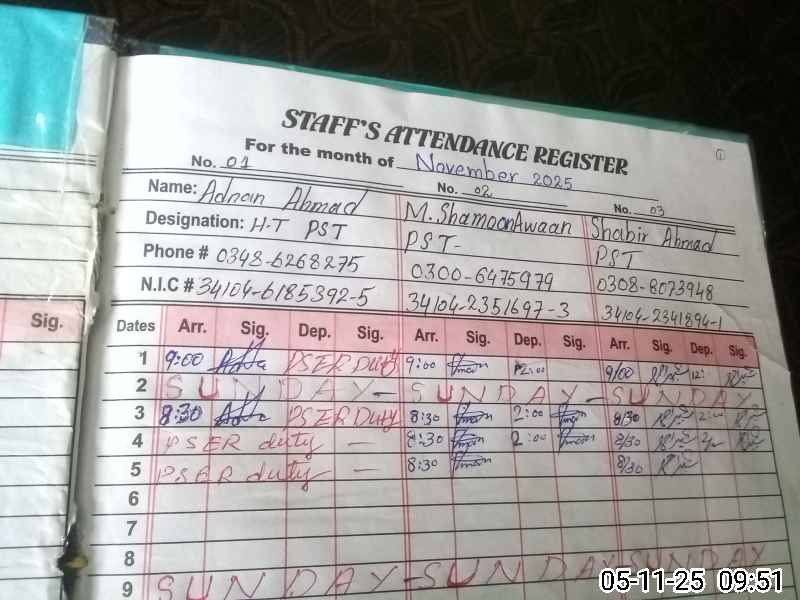 STAFF'S ATTENDANCE REGISTER
For the month of November 2025
1
No. 01 No. 02 No. 03
Name: Adnan Ahmad M. Shamoon Awaan Shabir Ahmad
Designation: H.T PST PST- PST
Phone # 0348-6268275 0300-6475979 0308-8073948
N.I.C # 34104-6185392-5 34104-2351697-3 34104-2341894-1
Sig.
Dates Arr. Sig. Dep. Sig. Arr. Sig. Dep. Sig. Arr. Sig. Dep. Sig.
1 9:00 PSER Duty 9:00 12:00 9/00 12:
2 SUNDAY - SUNDAY - SUNDAY
3 8:30 PSER Duty 8:30 2:00 8/30 2:00
4 PSER duty — 8:30 2:00 8/30
5 PSER duty — 8:30 8/30
6
7
8
9 SUNDAY - SUNDAY SUNDAY
05-11-25 09:51